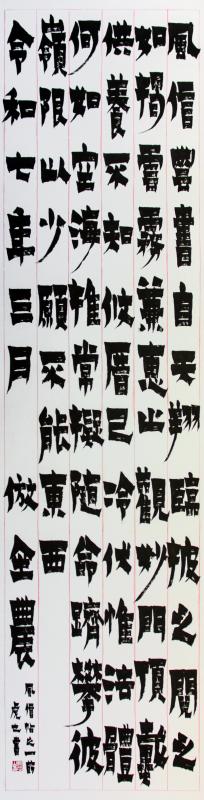 風信雲書自天翔臨披之閲之
如揭雲霧兼恵止觀妙門頂戴
供養不知攸厝已冷伏惟法體
何如空海推常擬随命躋攀彼
嶺限以少願不能東西
令和七年三月 倣金農
風信帖之一節
虎世書